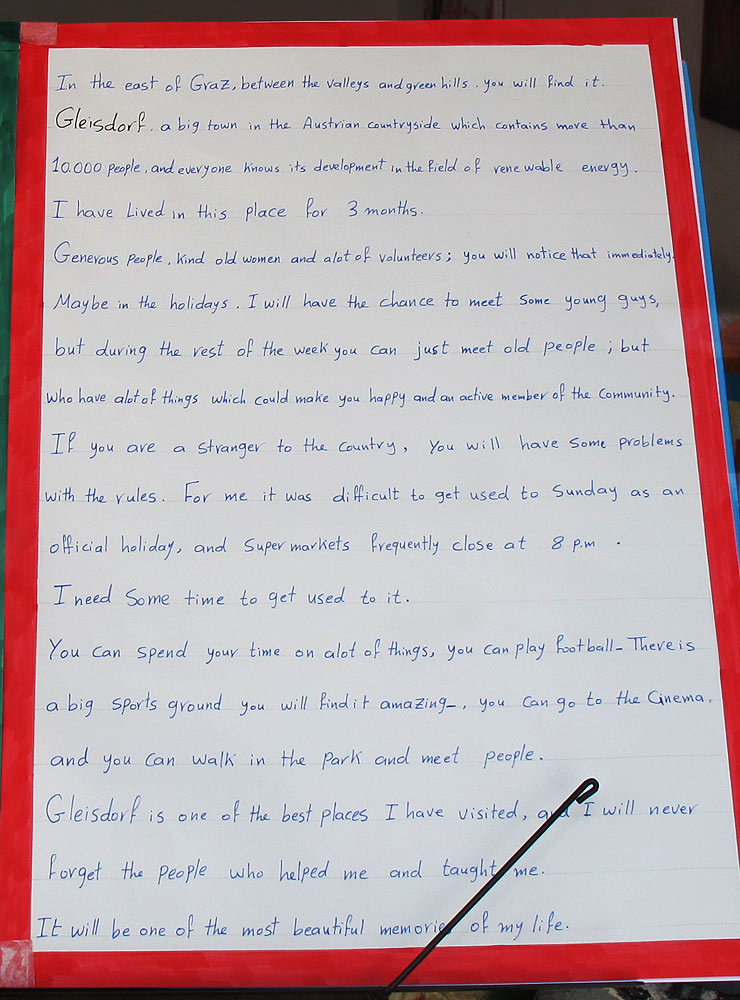 In the east of Graz, between the valleys and green hills. you will find it.
Gleisdorf. a big town in the Austrian countryside which contains more than
10.000 people, and everyone knows its development in the field of renewable energy.
I have Lived in this place for 3 months.
Generous people, kind old women and alot of volunteers; you will notice that immediately.
Maybe in the holidays. I will have the chance to meet some young guys,
but during the rest of the week you can just meet old people; but
who have alot of things which could make you happy and an active member of the community.
If you are a stranger to the country, you will have some problems
with the rules. For me it was difficult to get used to Sunday as an
official holiday, and Supermarkets frequently close at 8 p.m.
I need Some time to get used to it.
You can spend your time on alot of things, you can play football_ There is
a big sports ground you will find it amazing_, you can go to the Cinema,
and you can walk in the park and meet people.
Gleisdorf is one of the best places I have visited, and I will never
forget the people who helped me and taught me.
It will be one of the most beautiful memories of my life.